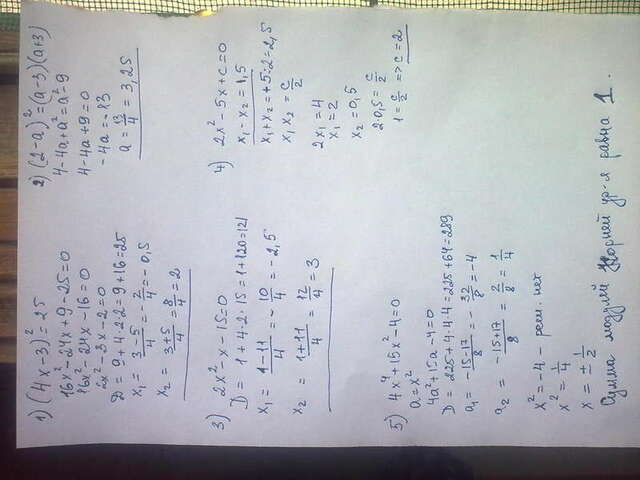 1) (4x-3)² = 25
16x² - 24x + 9 - 25 = 0
16x² - 24x - 16 = 0
2x² - 3x - 2 = 0
D = 9 + 4·2·2 = 9 + 16 = 25
x₁ = (3-5)/4 = -2/4 = -0,5
x₂ = (3+5)/4 = 8/4 = 2
2) (2-a)² = (a-3)(a+3)
4 - 4a + a² = a² - 9
4 - 4a + 9 = 0
-4a = -13
a = 13/4 = 3,25
3) 2x² x - 15 = 0
D = 1 + 4·2·15 = 1 + 120 = 121
x₁ = (1-11)/4 = -10/4 = -2,5
x₂ = (1+11)/4 = 12/4 = 3
4) 2x² - 5x + c = 0
x₁ - x₂ = 1,5
x₁ + x₂ = +5:2 = 2,5
x₁ x₂ = c/2
2x₁ = 4
x₁ = 2
x₂ = 0,5
2·0,5 = c/2
1 = c/2 => c = 2
5) 4x⁴ + 15x² - 4 = 0
a = x²
4a² + 15a - 4 = 0
D = 225 + 4·4·4 = 225 + 64 = 289
a₁ = (-15-17)/8 = -32/8 = -4
a₂ = (-15+17)/8 = 2/8 = 1/4
x² = -4 - реш. нет
x² = 1/4
x = ± 1/2
Сумма модулей корней ур-я равна 1.